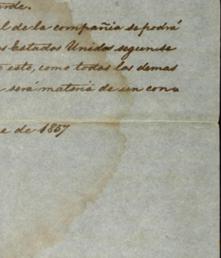 arde.
l de la compañia se podrá
os Estados Unidos segun se
esto, como todas las demas
será materia de un con
e de 1857